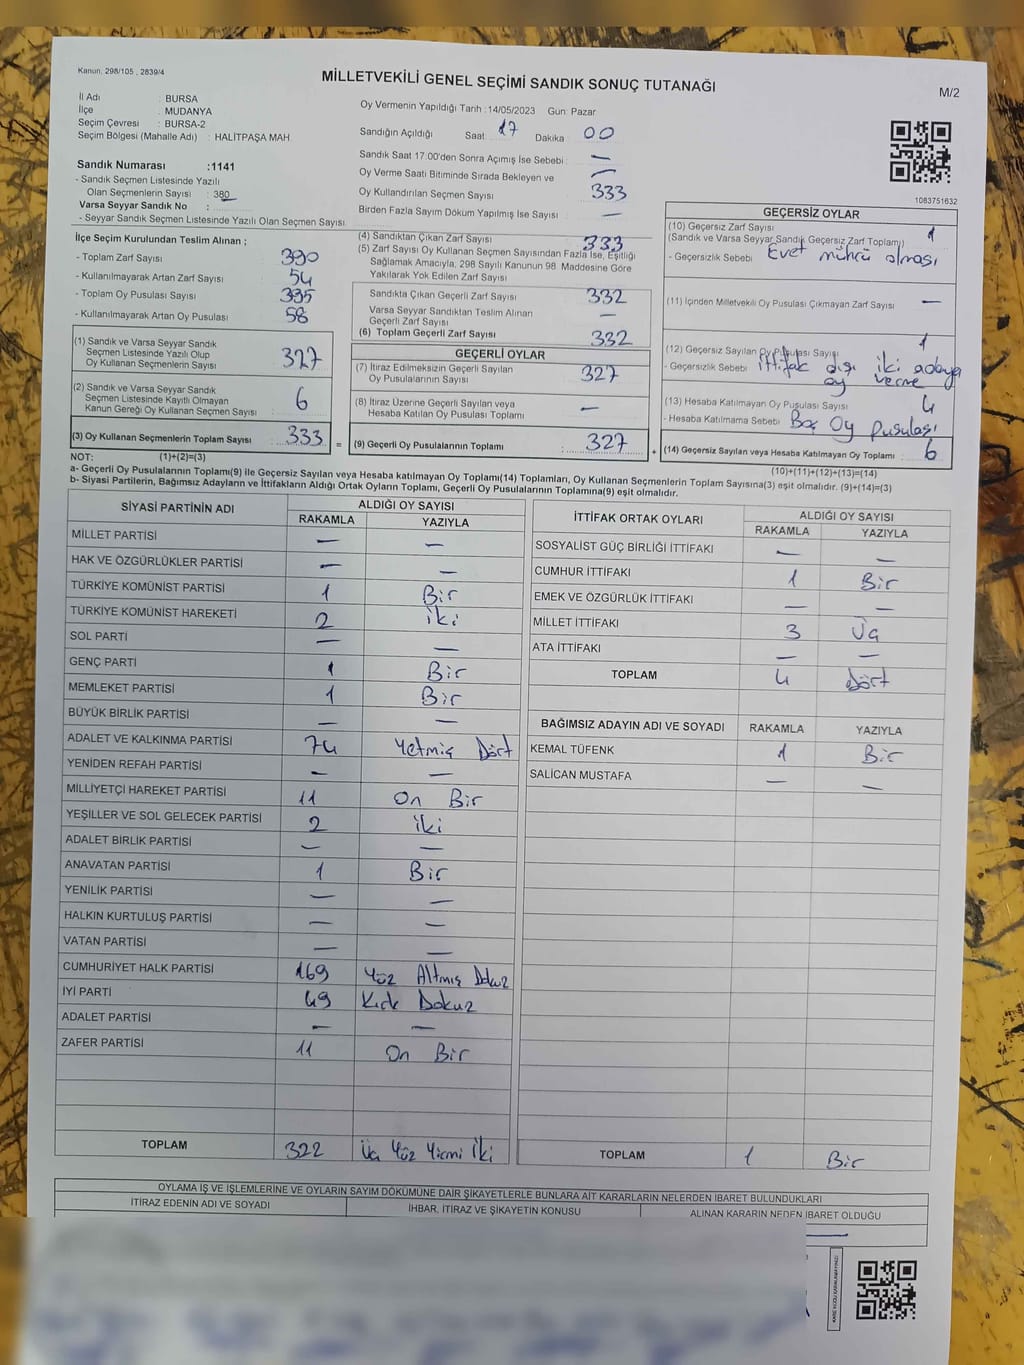 Kanun, 298/105 , 2839/4
MİLLETVEKİLİ GENEL SEÇİMİ SANDIK SONUÇ TUTANAĞI
M/2
İl Adı : BURSA
İlçe : MUDANYA
Seçim Çevresi : BURSA-2
Seçim Bölgesi (Mahalle Adı) : HALİTPAŞA MAH.
Sandık Numarası :1141
- Sandık Seçmen Listesinde Yazılı
Olan Seçmenlerin Sayısı : 380
Varsa Seyyar Sandık No :
- Seyyar Sandık Seçmen Listesinde Yazılı Olan Seçmen Sayısı
Oy Vermenin Yapıldığı Tarih :14/05/2023 Gün: Pazar
Sandığın Açıldığı Saat: 17 Dakika : 00
Sandık Saat 17:00'den Sonra Açımış İse Sebebi : —
Oy Verme Saati Bitiminde Sırada Bekleyen ve —
Oy Kullandırılan Seçmen Sayısı 333
Birden Fazla Sayım Döküm Yapılmış İse Sayısı —
1083751632
İlçe Seçim Kurulundan Teslim Alınan ;
- Toplam Zarf Sayısı 390
- Kullanılmayarak Artan Zarf Sayısı 54
- Toplam Oy Pusulası Sayısı 395
- Kullanılmayarak Artan Oy Pusulası 58
(1) Sandık ve Varsa Seyyar Sandık
Seçmen Listesinde Yazılı Olup
Oy Kullanan Seçmenlerin Sayısı : 327
(2) Sandık ve Varsa Seyyar Sandık
Seçmen Listesinde Kayıtlı Olmayan
Kanun Gereği Oy Kullanan Seçmen Sayısı : 6
(3) Oy Kullanan Seçmenlerin Toplam Sayısı : 333 =
(4) Sandıktan Çıkan Zarf Sayısı 333
(5) Zarf Sayısı Oy Kullanan Seçmen Sayısından Fazla İse, Eşitliği
Sağlamak Amacıyla, 298 Sayılı Kanunun 98. Maddesine Göre
Yakılarak Yok Edilen Zarf Sayısı
Sandıkta Çıkan Geçerli Zarf Sayısı 332
Varsa Seyyar Sandıktan Teslim Alınan
Geçerli Zarf Sayısı
(6) Toplam Geçerli Zarf Sayısı 332
GEÇERLİ OYLAR
(7) İtiraz Edilmeksizin Geçerli Sayılan
Oy Pusulalarının Sayısı 327
(8) İtiraz Üzerine Geçerli Sayılan veya
Hesaba Katılan Oy Pusulası Toplamı —
(9) Geçerli Oy Pusulalarının Toplamı : 327 +
GEÇERSİZ OYLAR
(10) Geçersiz Zarf Sayısı
(Sandık ve Varsa Seyyar Sandık Geçersiz Zarf Toplamı) 1
- Geçersizlik Sebebi Evet mührü olması
(11) İçinden Milletvekili Oy Pusulası Çıkmayan Zarf Sayısı —
(12) Geçersiz Sayılan Oy Pusulası Sayısı 1
- Geçersizlik Sebebi ittifak dışı iki adaya
oy verme
(13) Hesaba Katılmayan Oy Pusulası Sayısı 4
- Hesaba Katılmama Sebebi Boş Oy Pusulası
(14) Geçersiz Sayılan veya Hesaba Katılmayan Oy Toplamı : 6
NOT: (1)+(2)=(3) (10)+(11)+(12)+(13)=(14)
a- Geçerli Oy Pusulalarının Toplamı(9) ile Geçersiz Sayılan veya Hesaba katılmayan Oy Toplamı(14) Toplamları, Oy Kullanan Seçmenlerin Toplam Sayısına(3) eşit olmalıdır. (9)+(14)=(3)
b- Siyasi Partilerin, Bağımsız Adayların ve İttifakların Aldığı Ortak Oyların Toplamı, Geçerli Oy Pusulalarının Toplamına(9) eşit olmalıdır.
SİYASİ PARTİNİN ADI ALDIĞI OY SAYISI
RAKAMLA YAZIYLA
MİLLET PARTİSİ — —
HAK VE ÖZGÜRLÜKLER PARTİSİ — —
TÜRKİYE KOMÜNİST PARTİSİ 1 Bir
TÜRKİYE KOMÜNİST HAREKETİ 2 iki
SOL PARTİ — —
GENÇ PARTİ 1 Bir
MEMLEKET PARTİSİ 1 Bir
BÜYÜK BİRLİK PARTİSİ — —
ADALET VE KALKINMA PARTİSİ 74 Yetmiş Dört
YENİDEN REFAH PARTİSİ — —
MİLLİYETÇİ HAREKET PARTİSİ 11 On Bir
YEŞİLLER VE SOL GELECEK PARTİSİ 2 iki
ADALET BİRLİK PARTİSİ — —
ANAVATAN PARTİSİ 1 Bir
YENİLİK PARTİSİ — —
HALKIN KURTULUŞ PARTİSİ — —
VATAN PARTİSİ — —
CUMHURİYET HALK PARTİSİ 169 Yüz Altmış Dokuz
İYİ PARTİ 49 Kırk Dokuz
ADALET PARTİSİ — —
ZAFER PARTİSİ 11 On Bir
TOPLAM 322 Üç Yüz Yirmi İki
İTTİFAK ORTAK OYLARI ALDIĞI OY SAYISI
RAKAMLA YAZIYLA
SOSYALİST GÜÇ BİRLİĞİ İTTİFAKI — —
CUMHUR İTTİFAKI 1 Bir
EMEK VE ÖZGÜRLÜK İTTİFAKI — —
MİLLET İTTİFAKI 3 Üç
ATA İTTİFAKI — —
TOPLAM 4 Dört
BAĞIMSIZ ADAYIN ADI VE SOYADI RAKAMLA YAZIYLA
KEMAL TÜFENK 1 Bir
SALİCAN MUSTAFA — —
TOPLAM 1 Bir
OYLAMA İŞ VE İŞLEMLERİNE VE OYLARIN SAYIM DÖKÜMÜNE DAİR ŞİKAYETLERLE BUNLARA AİT KARARLARIN NELERDEN İBARET BULUNDUKLARI
İTİRAZ EDENİN ADI VE SOYADI İHBAR, İTİRAZ VE ŞİKAYETİN KONUSU ALINAN KARARIN NEDEN İBARET OLDUĞU